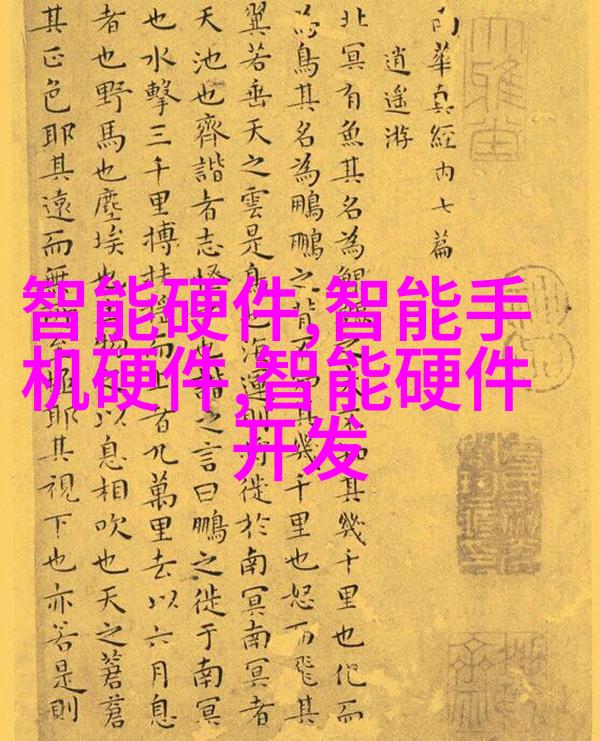 南華真經内七篇
逍遙游
北冥有魚其名為鯤鯤之大不知其幾千里也化而
為鳥其名為鵬鵬之背不知其幾千里也怒而飛其
翼若垂天之雲是鳥也海運則將徙於南冥南冥者
天池也齊諧者志怪者也諧之言曰鵬之徙于南冥
也水擊三千里搏扶搖而上者九萬里去以六月息
者也野馬也塵埃也生物之以息相吹也天之蒼蒼
其正色耶其遠而無所至極耶其視下也亦若是則
大雅堂
智能硬件,智能手
机硬件,智能硬件
开发